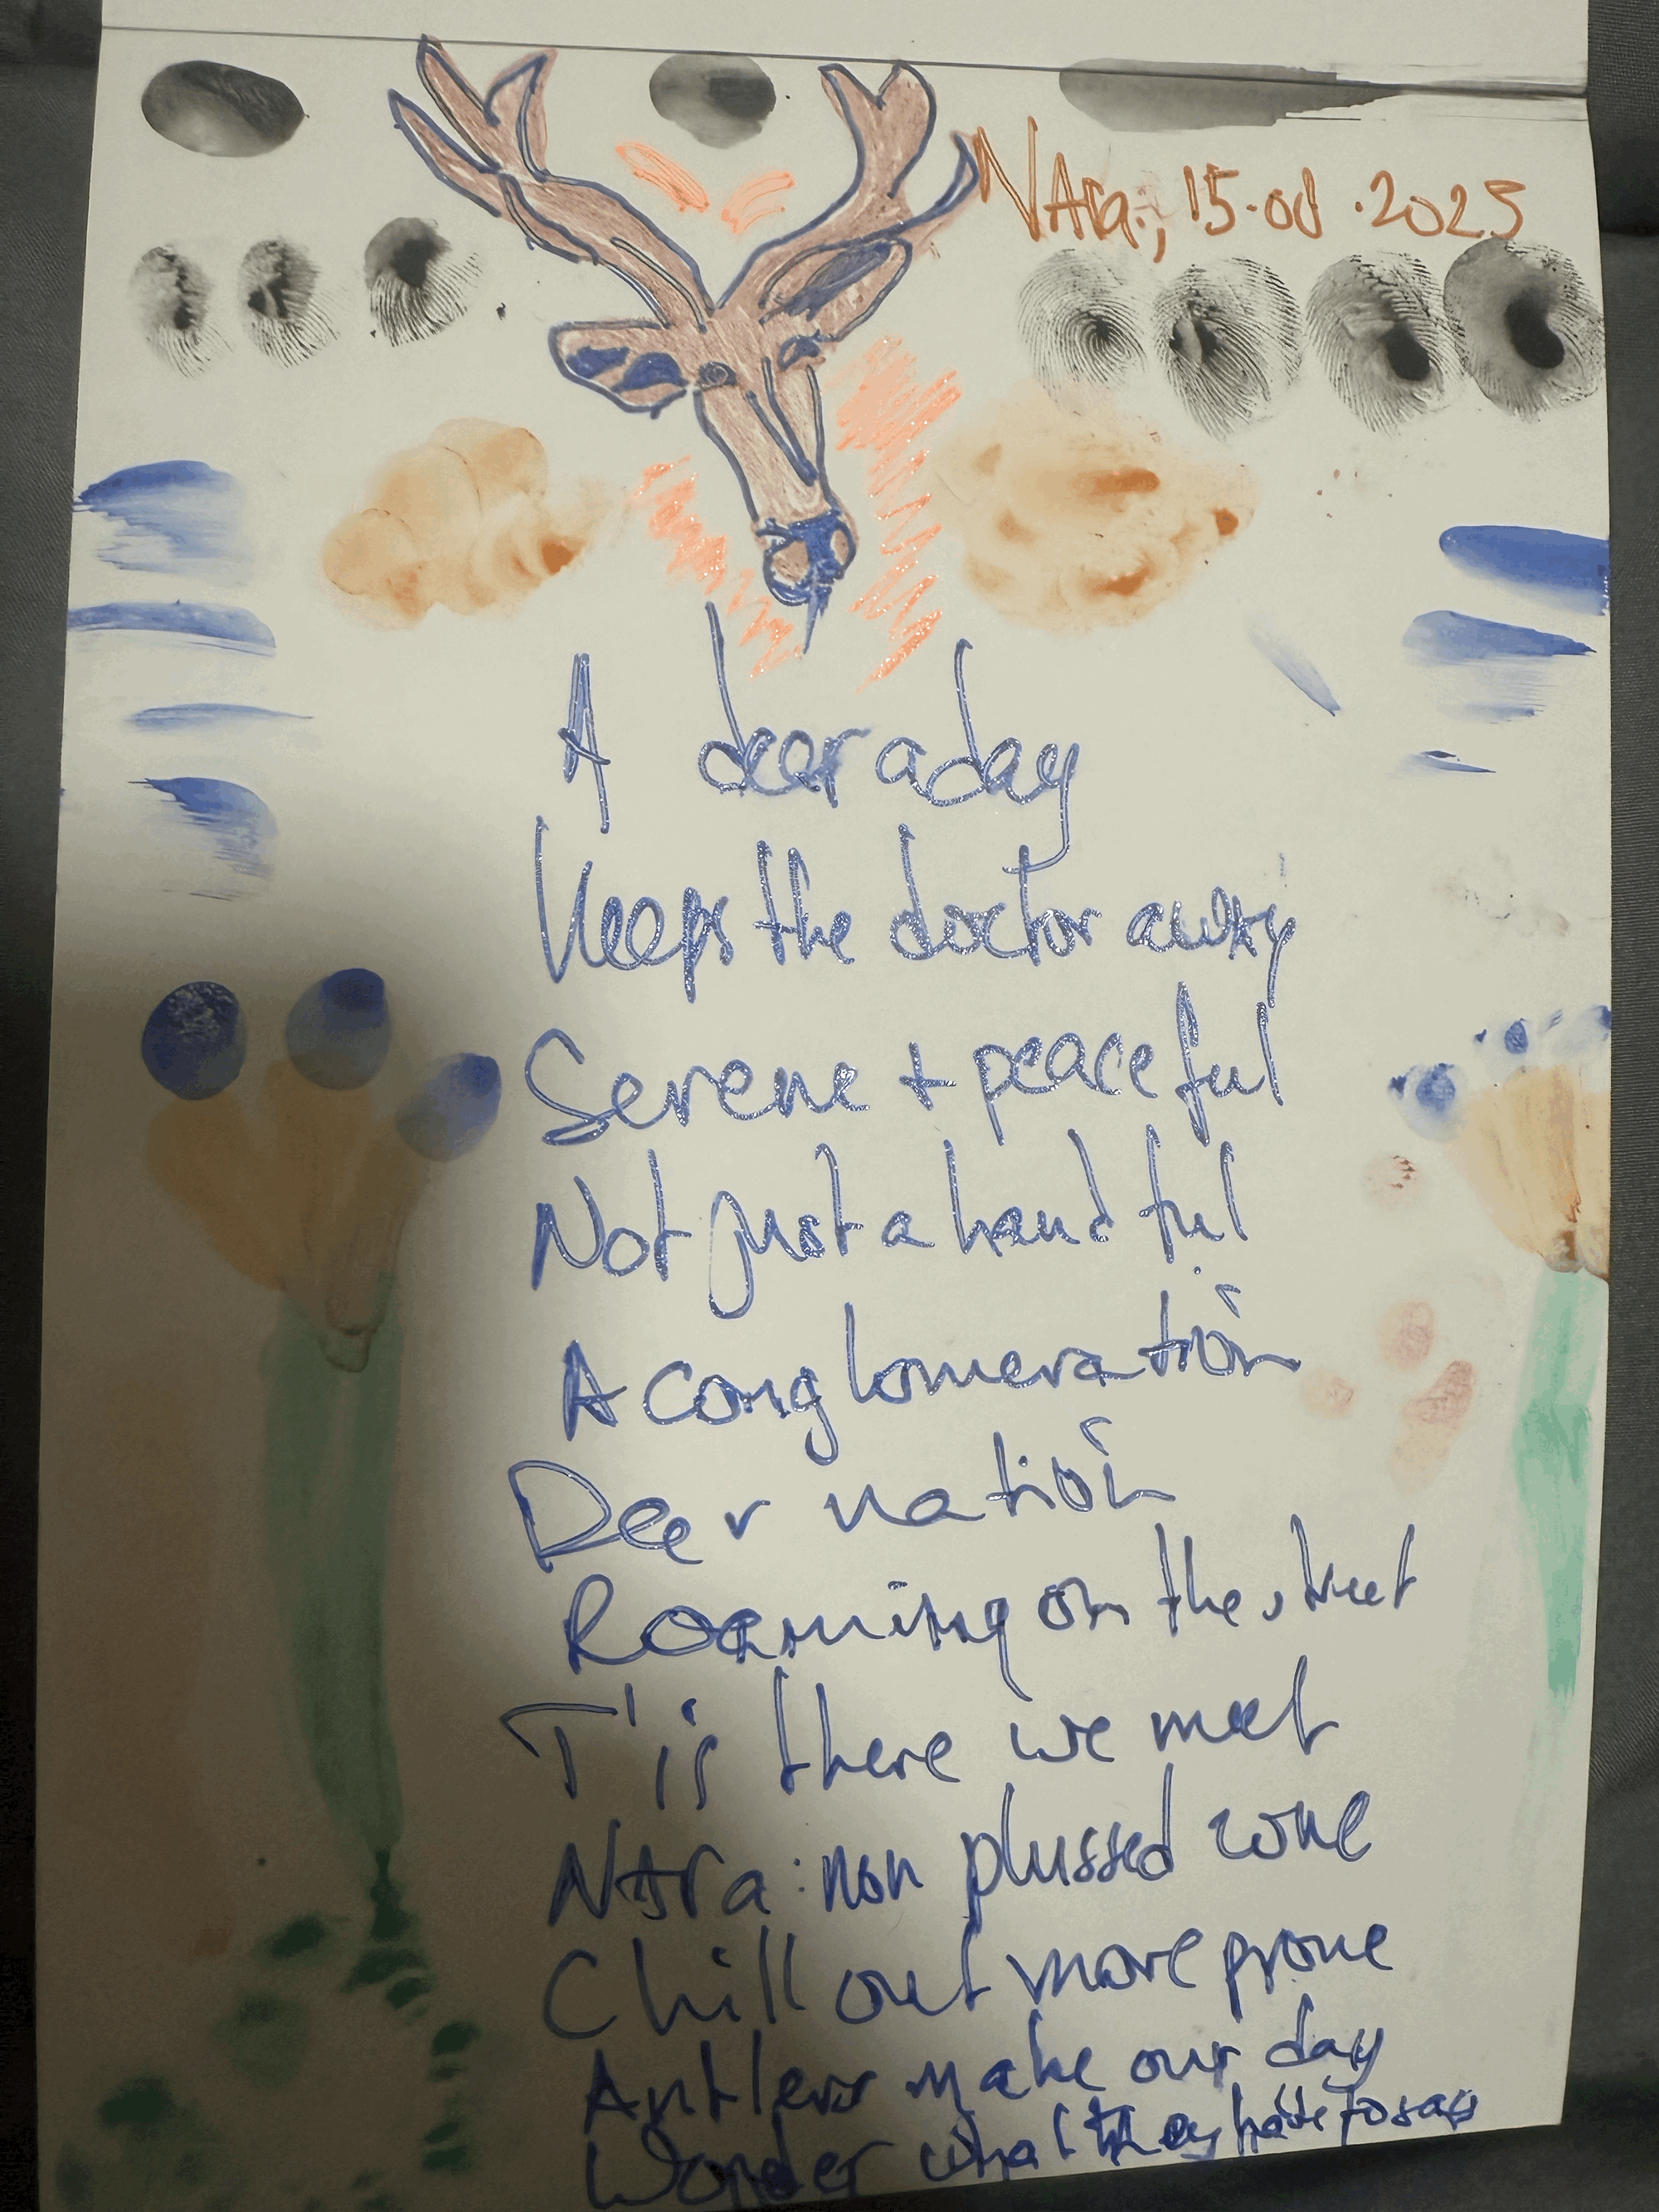 NAra, 15.Od.2025
A deer a day
Keeps the doctor away
Serene + peaceful
Not just a handful
A conglomeration
Deer nation
Roaming on the street
T'is there we meet
NAra: non plussed zone
Chill out more prone
Antlers make our day
Wonder what they have to say